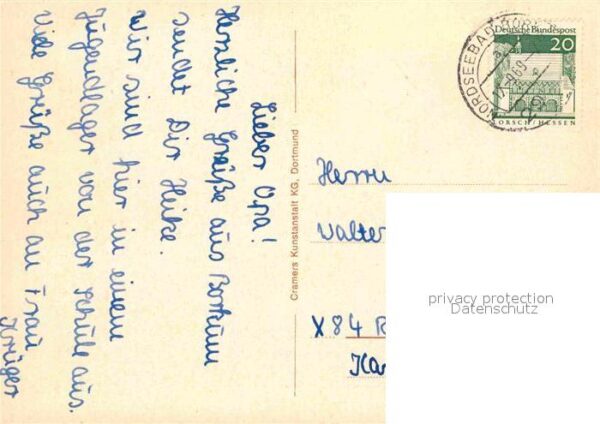 Lieber Opa!
Herzliche Grüße aus Borkum
sendet Dir Heike.
Wir sind hier in einem
Jugendlager von der Schule aus.
Viele Grüße auch an Frau
Krüger
Cramers Kunstanstalt KG, Dortmund
NORDSEEBAD
Deutsche Bundespost
20
LORSCH/HESSEN
Herrn
Walter
X 84 R
privacy protection
Datenschutz